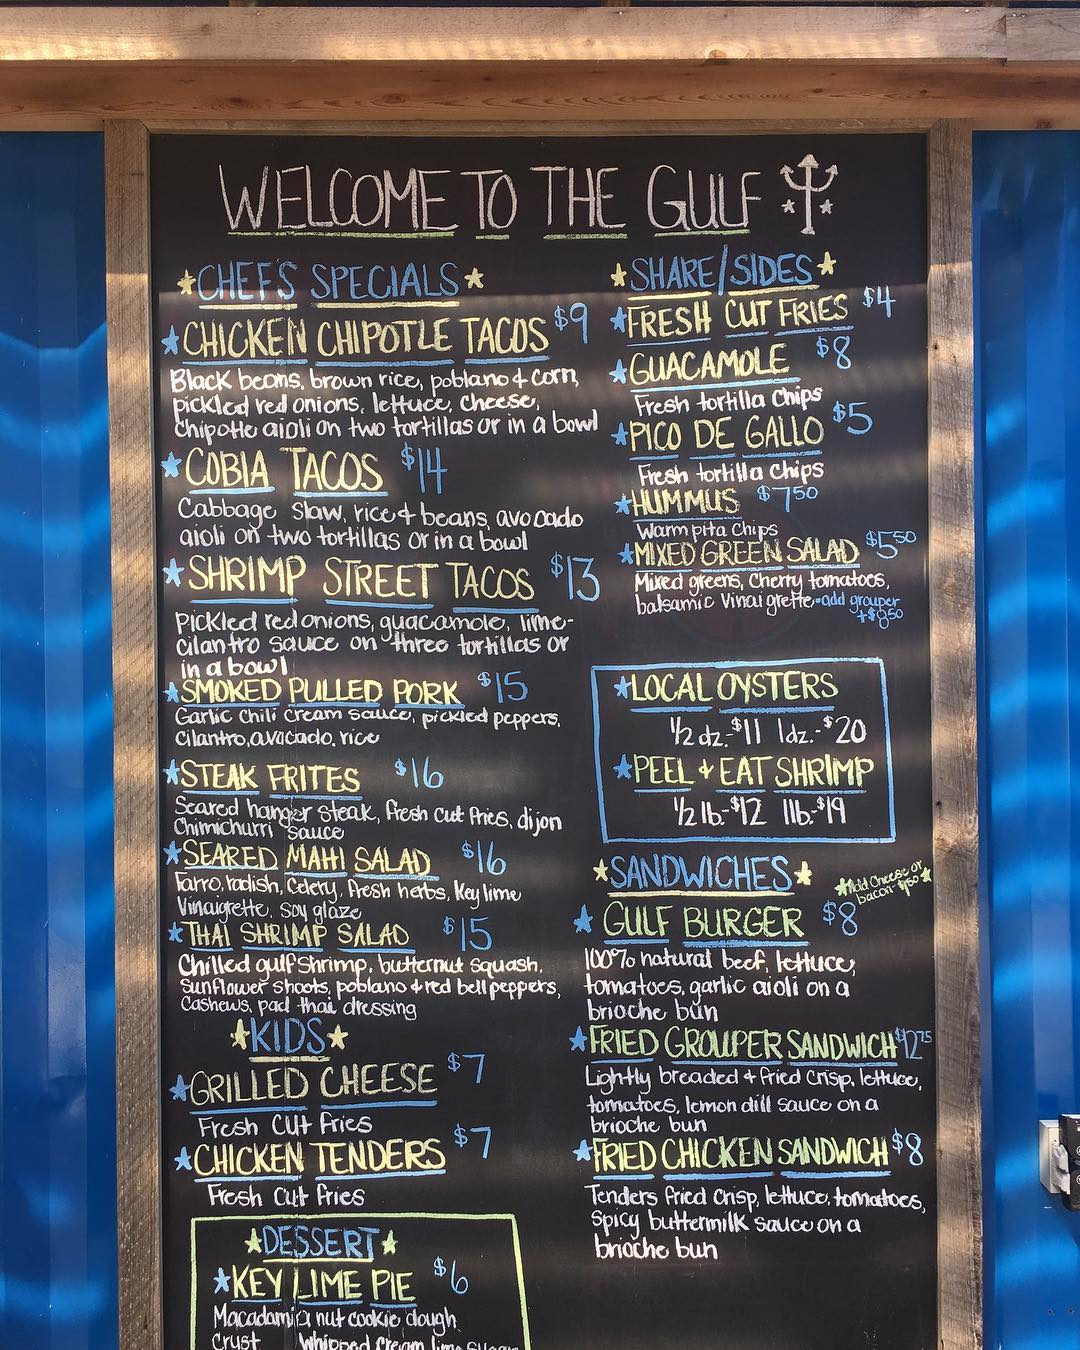 WELCOME TO THE GULF
CHEF'S SPECIALS
CHICKEN CHIPOTLE TACOS $9
Black beans, brown rice, poblano & corn,
pickled red onions, lettuce, cheese,
chipotle aioli on two tortillas or in a bowl
COBIA TACOS $14
Cabbage slaw, rice & beans, avocado
aioli on two tortillas or in a bowl
SHRIMP STREET TACOS $13
Pickled red onions, guacamole, lime-
cilantro sauce on three tortillas or
in a bowl
SMOKED PULLED PORK $15
Garlic chili cream sauce, pickled peppers,
cilantro, avocado, rice
STEAK FRITES $16
Seared hanger steak, fresh cut fries, dijon
Chimichurri sauce
SEARED MAHI SALAD $16
Farro, radish, celery, fresh herbs, key lime
Vinaigrette, soy glaze
THAI SHRIMP SALAD $15
Chilled gulf shrimp, butternut squash,
sunflower shoots, poblano & red bell peppers,
Cashews, pad thai dressing
KIDS
GRILLED CHEESE $7
Fresh cut fries
CHICKEN TENDERS $7
Fresh cut fries
DESSERT
KEY LIME PIE $6
Macadamia nut cookie dough
Crust whipped cream, lime sugar
SHARE/SIDES
FRESH CUT FRIES $4
GUACAMOLE $8
Fresh tortilla chips
PICO DE GALLO $5
Fresh tortilla chips
HUMMUS $7.50
Warm pita chips
MIXED GREEN SALAD $5.50
Mixed greens, cherry tomatoes,
balsamic vinaigrette • add grouper
+$8.50
LOCAL OYSTERS
1/2 dz.-$11 1dz.-$20
PEEL & EAT SHRIMP
1/2 lb.-$12 1lb.-$19
SANDWICHES
Add cheese or
bacon $1.50
GULF BURGER $8
100% natural beef, lettuce,
tomatoes, garlic aioli on a
brioche bun
FRIED GROUPER SANDWICH $12.75
Lightly breaded & fried crisp, lettuce,
tomatoes, lemon dill sauce on a
brioche bun
FRIED CHICKEN SANDWICH $8
Tenders fried crisp, lettuce, tomatoes,
spicy buttermilk sauce on a
brioche bun